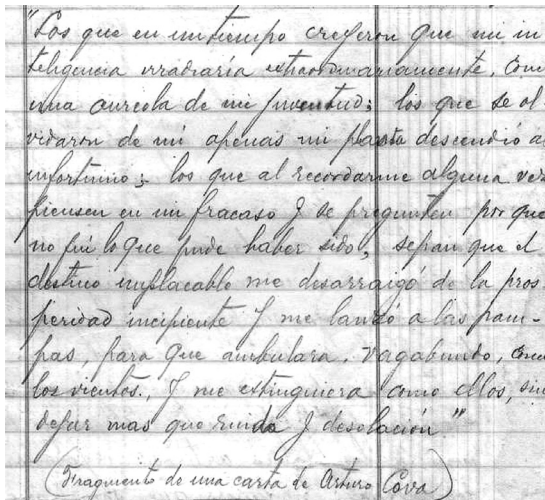 "Los que en un tiempo creyeron que mi in
teligencia irradiaría extraordinariamente, com
una aureola de mi juventud; los que se ol-
vidaron de mí apenas mi planta descendió al
infortunio; los que al recordarme alguna vez
piensen en mi fracaso y se pregunten por qué
no fuí lo que pude haber sido, sepan que el
destino implacable me desarraigó de la pros
peridad incipiente y me lanzó a las pam-
pas, para que ambulara, vagabundo, como
los vientos, y me extinguiera como ellos, sin
dejar mas que ruido y desolación."
(Fragmento de una carta de Arturo Cova)